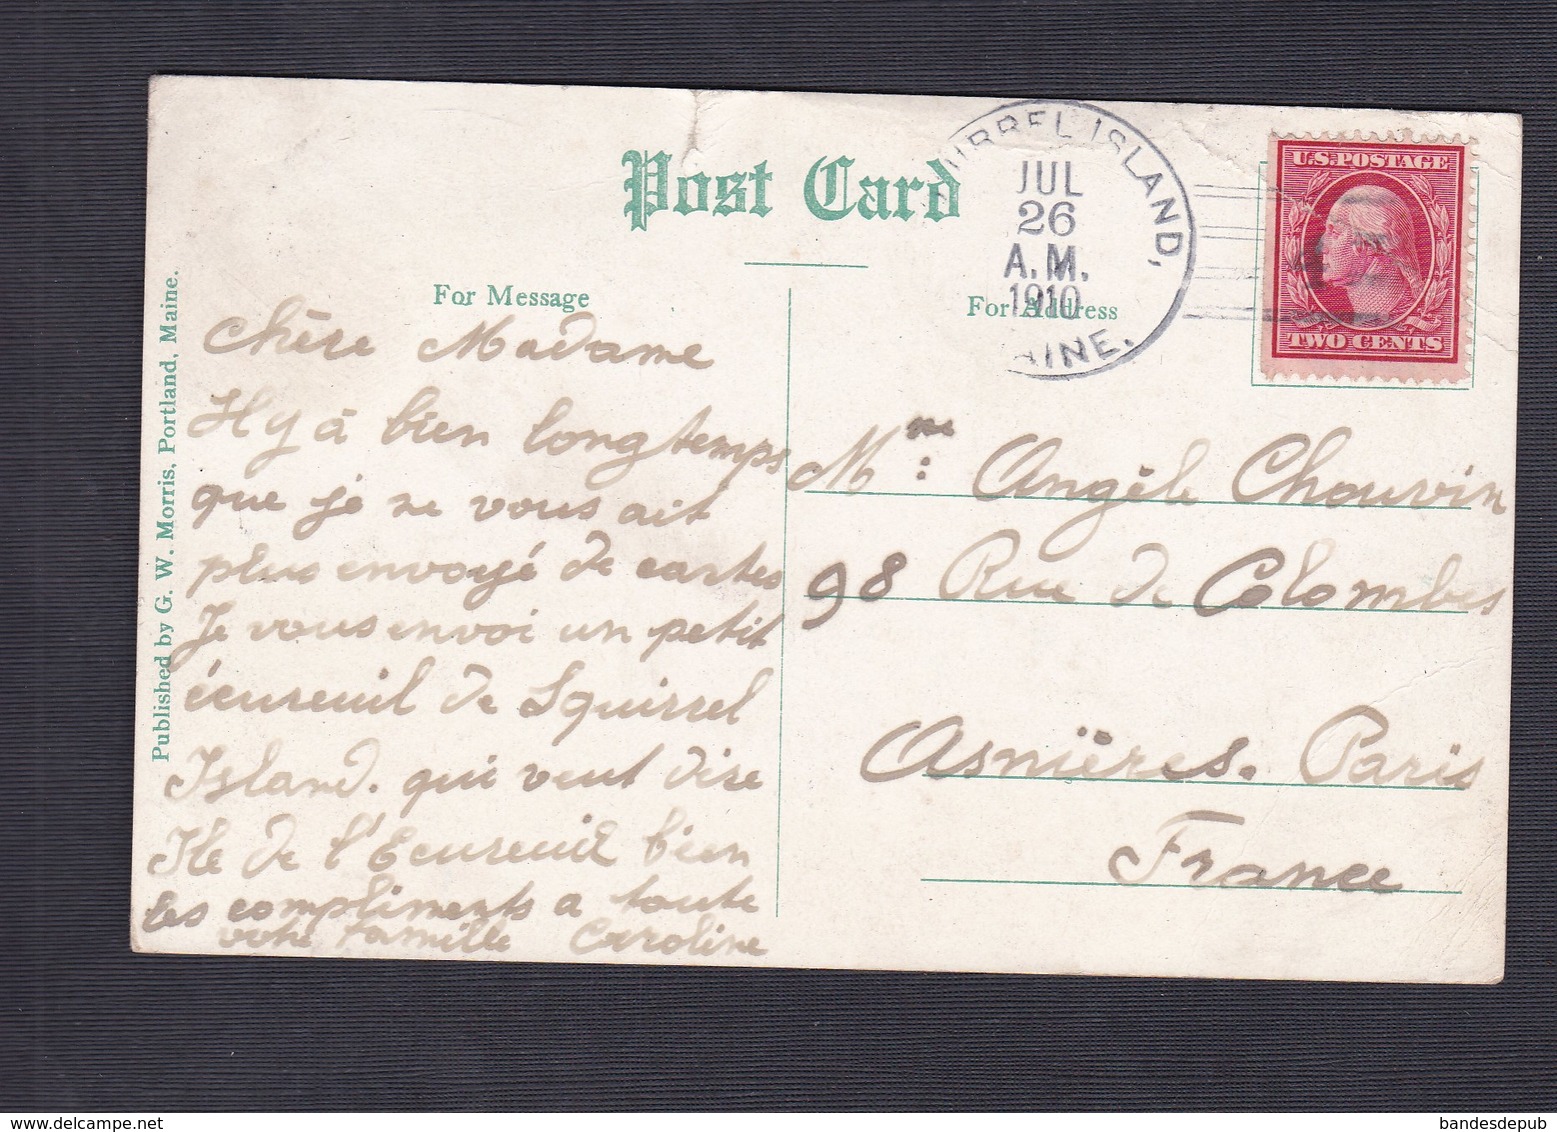 Post Card
For Message
For Address
Published by G. W. Morris, Portland, Maine.
URREL ISLAND,
JUL
26
A.M.
1910
AINE.
U.S. POSTAGE
TWO CENTS
Chère Madame
Il y à bien longtemps
que je ne vous ait
plus envoyé de cartes
Je vous envoi un petit
écureuil de Squirrel
Island. qui veut dire
Ile de l'Ecureuil bien
les compliments a toute
votre famille Caroline
Mme: Angèle Chouvin
98 Rue de Colombes
Asnières. Paris
France
delcampe.net
bandesdepub